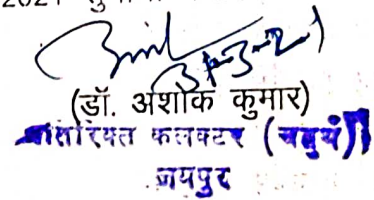 2021
31-3-21
(डॉ. अशोक कुमार)
अतिरिक्त कलक्टर (चतुर्थ)
जयपुर